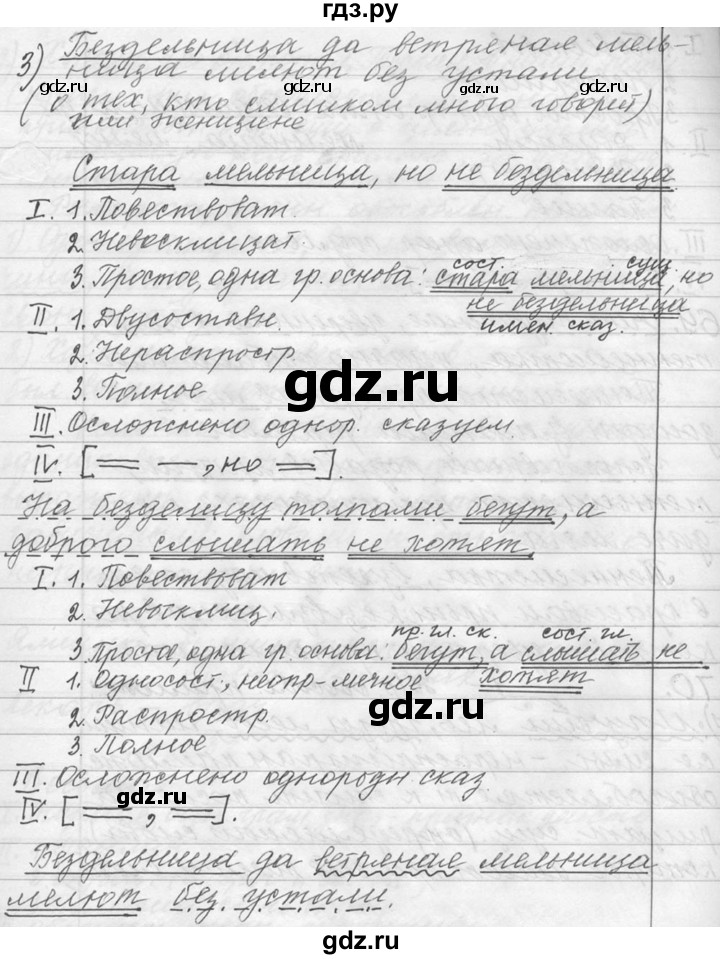 гдз.ру
3) Бездельница да ветряная мель-
ница мелют без устали
(о тех, кто слишком много говорит)
или женщине
Стара мельница, но не бездельница.
I. 1. Повествоват.
2. Невосклицат.
3. Простое, одна гр. основа: стара мельница, но
сост. сущ.
не бездельница
имен. сказ.
II. 1. Двусоставн.
2. Нераспростр.
3. Полное
gdz.ru
III. Осложнено однор. сказуем.
IV. [== —, но ==].
На безделицу толпами бегут, а
доброго слышать не хотят.
I. 1. Повествоват
2. Невосклиц.
пр. гл. ск. сост. гл.
3. Простое, одна гр. основа: бегут, а слышать не
хотят
II 1. Односост., неопр-личное
2. Распростр.
3. Полное
gdz.ru
III. Осложнено однородн сказ.
gdz.ru
IV. [==, ==].
Бездельница да ветряная мельница
мелют без устали.
gdz.ru